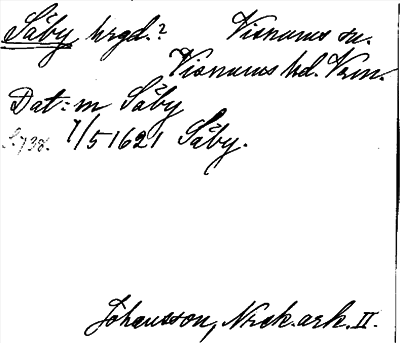 Såby, hrgd.? Visnums sn.
Visnums hd. Vrm.
Dat: m Såby
S. 738. 7/5 1621 Såby.
Johansson, Norek. ark. II.